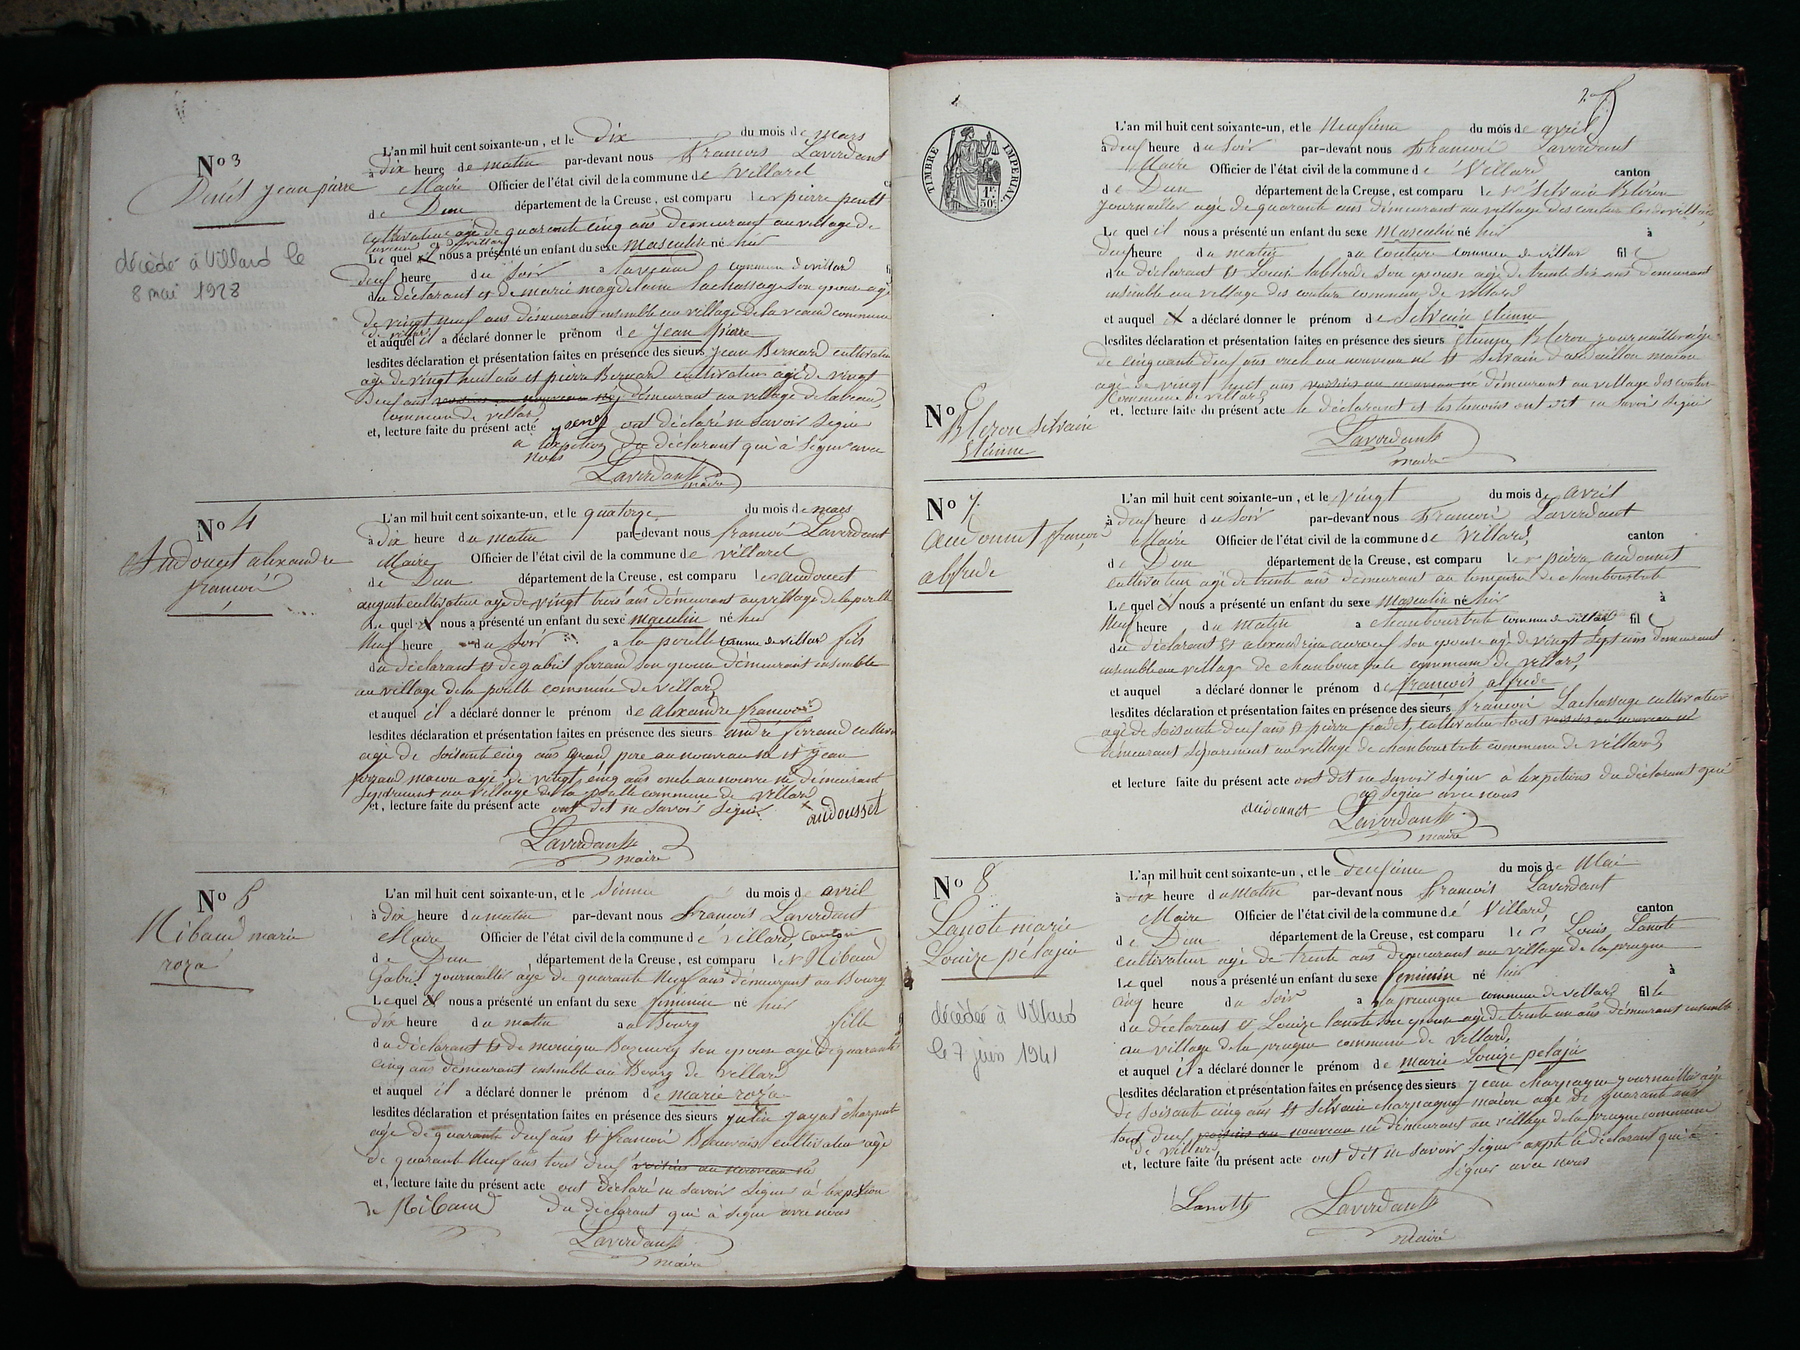 L'an mil huit cent soixante-un, et le Dix du mois de mars
à dix heure de matin par-devant nous Francois Laverdant
Maire Officier de l'état civil de la commune de villard
de Dun département de la Creuse, est comparu le pierre
cultivateur agé de quarente cinq ans demeurant au village de
Le quel il nous a présenté un enfant du sexe masculin né hier
deux heure du soir a commune de villard
du déclarant et de marie magdelaine Lachassage son epouse agé
de vingt neuf ans demeurant ensemble au village de commune
de villard
et auquel il a déclaré donner le prénom de Jean pierre
lesdites déclaration et présentation faites en présence des sieurs Jean Bernard cultivateur
agé de vingt huit ans et pierre Bernard cultivateur agé de vingt
Deux ans voisins au nouveau né demeurant au village de
commune de villard
et, lecture faite du présent acte ont déclaré ne savoir signé
a lexpetion du déclarant qui à signé avec
nous
Laverdant
maire
No 3
Denis Jean pierre
décédé à Villard le
8 mai 1928
No 4
Audouset alexandre
francois
L'an mil huit cent soixante-un, et le quatorze du mois de mars
à dix heure du matin par-devant nous francois Laverdant
Maire Officier de l'état civil de la commune de villard
de Dun département de la Creuse, est comparu le
auguste cultivateur agé de vingt trois ans demeurant au village de la
Le quel il nous a présenté un enfant du sexe masculin né hier
Neuf heure du soir a la commune de villard fils
du déclarant et de son epouse demeurant ensemble
au village de la commune de villard
et auquel il a déclaré donner le prénom de alexandre francois
lesdites déclaration et présentation faites en présence des sieurs andré ferrand
agé de soisente cinq ans grand pere au nouveau né et Jean
ferrand macon agé de vingt cinq ans oncle au nouveau né demeurant
au village de la commune de villard
et, lecture faite du présent acte ont dit ne savoir signé. audousset
Laverdant
maire
No 5
Nibaud marie
roza
L'an mil huit cent soixante-un, et le du mois de avril
à dix heure du matin par-devant nous Francois Laverdant
Maire Officier de l'état civil de la commune de villard, canton
de Dun département de la Creuse, est comparu le Sr Nibaud
Gabriel journallier agé de quarante Neuf ans demeurant au Bourg
Le quel il nous a présenté un enfant du sexe feminin né hier
dix heure du matin au Bourg fille
du déclarant et de monique son epouse agé de quarante
cinq ans demeurant ensemble au Bourg de villard
et auquel il a déclaré donner le prénom de marie roza
lesdites déclaration et présentation faites en présence des sieurs
agé de quarante deux ans et francois Beauvais cultivateur agé
de quarante Neuf ans tous deux voisins au nouveau né
et, lecture faite du présent acte ont déclaré ne savoir signé à lexpetion
de Nibaud du déclarant qui à signé avec nous
Laverdant
maire
TIMBRE IMPERIAL
1F. 50c.
L'an mil huit cent soixante-un, et le Neufième du mois de avril
à deux heure du soir par-devant nous Francois Laverdant
Maire Officier de l'état civil de la commune de Villard canton
de Dun département de la Creuse, est comparu le Sr Silvain Bleron
Journallier agé de quarante ans demeurant au village des couture
Le quel il nous a présenté un enfant du sexe Masculin né hier à
deux heure du matin au couture commune de villar fil
du déclarant et Louise son epouse agé de trente six ans demeurant
ensemble au village des couture commune de villard
et auquel il a déclaré donner le prénom de Silvain Etienne
lesdites déclaration et présentation faites en présence des sieurs Etienne Bleron journallier agé
de cinquante deux ans oncle au nouveau né et Silvain macon
agé de vingt huit ans voisins au nouveau né demeurant au village des couture
commune de villard
et, lecture faite du présent acte le déclarant et les temoins ont dit ne savoir signé
Laverdant
maire
No 6
Bleron Silvain
Etienne
No 7
audonnet françois
alfrede
L'an mil huit cent soixante-un, et le vingt du mois de avril
à deux heure du soir par-devant nous Francois Laverdant
Maire Officier de l'état civil de la commune de Villard canton
de Dun département de la Creuse, est comparu le Sr pierre audonnet
cultivateur agé de trente ans demeurant au de chamboustrote
Le quel il nous a présenté un enfant du sexe Masculin né hier à
Neuf heure du matin a chamboustrote commune de villard fil
du déclarant et alexandrine son epouse agé de vingt sept ans demeurant
ensemble au village de commune de villard
et auquel a déclaré donner le prénom de francois alfrede
lesdites déclaration et présentation faites en présence des sieurs francois Lachassage cultivateur
agé de soisante deux ans et pierre cultivateur tous voisins au nouveau né
demeurant séparement au village de chamboustrote commune de villard
et lecture faite du présent acte ont dit ne savoir signer à lexpetions du déclarant qui
a signer avec nous
audonnet Laverdant
maire
No 8
Lanote marie
Louize pélajie
décédée à Villard
le 7 juin 1941
L'an mil huit cent soixante-un, et le deuxième du mois de Mai
à dix heure du matin par-devant nous francois Laverdant
Maire Officier de l'état civil de la commune de Villard canton
de Dun département de la Creuse, est comparu le Sr Louis Lanote
cultivateur agé de trente ans demeurant au village de la prugne
Le quel nous a présenté un enfant du sexe feminin né hier à
cinq heure du soir a la prungne commune de villard fille
du déclarant et Louize lanote son epouse agé de trente un ans démeurant ensemble
au village de la prugne commune de villard
et auquel il a déclaré donner le prénom de marie Louize pelajie
lesdites déclaration et présentation faites en présence des sieurs Jean charpagne journallier agé
de soisante cinq ans et Silvain charpagne macon agé de quarante ans
tous deux voisins au nouveau né demeurant au village de la prugne commune
de villard
et, lecture faite du présent acte ont dit ne savoir signer expté le déclarant qui à
signer avec nous
Lanotte Laverdant
maire